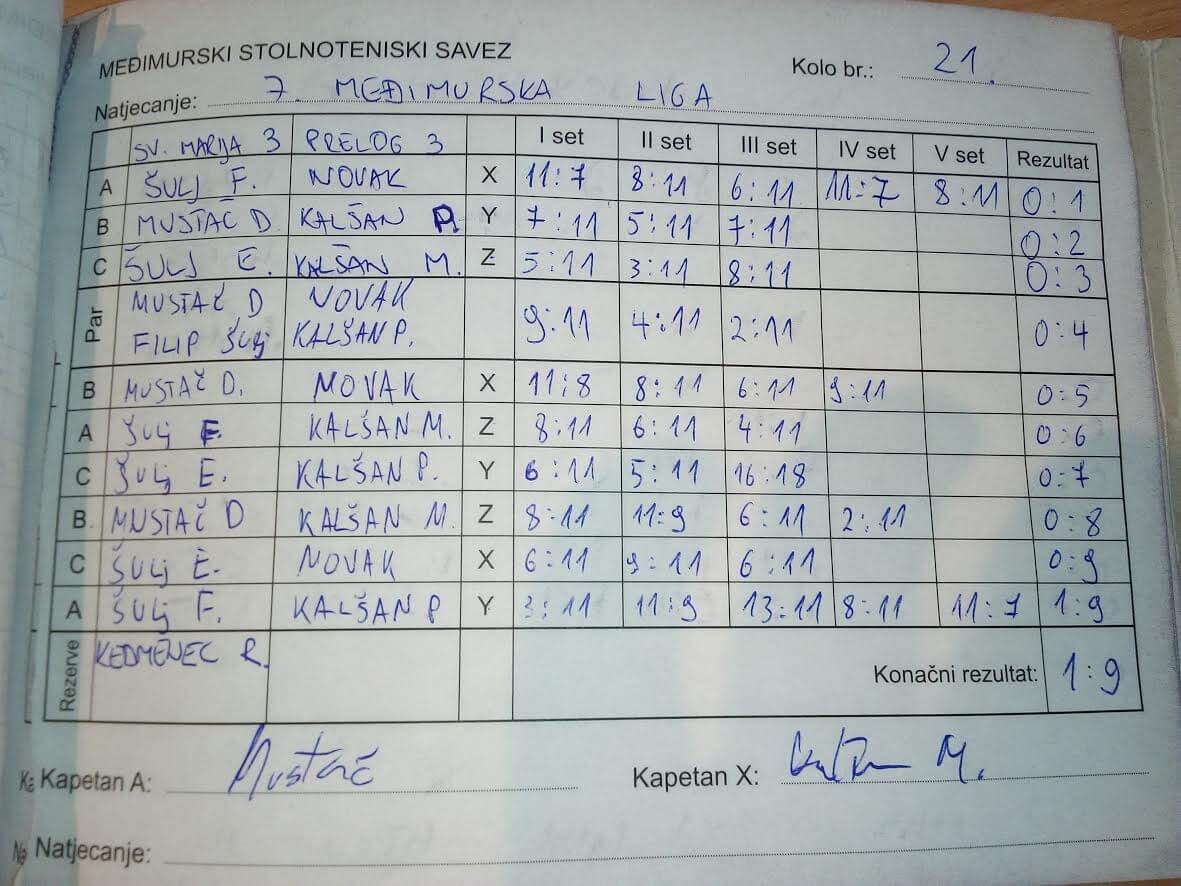 MEĐIMURSKI STOLNOTENISKI SAVEZ
Kolo br.: 21.
Natjecanje: 7. MEĐIMURSKA LIGA
SV. MARIJA 3 PRELOG 3 I set II set III set IV set V set Rezultat
A ŠULJ F. NOVAK X 11:7 8:11 6:11 11:7 8:11 0:1
B MUSTAČ D KALŠAN P. Y 7:11 5:11 7:11 0:2
C ŠULJ E. KALŠAN M. Z 5:11 3:11 8:11 0:3
Par MUSTAČ D NOVAK 9:11 4:11 2:11 0:4
FILIP ŠULJ KALŠAN P.
B MUSTAČ D. NOVAK X 11:8 8:11 6:11 9:11 0:5
A ŠULJ F. KALŠAN M. Z 8:11 6:11 4:11 0:6
C ŠULJ E. KALŠAN P. Y 6:11 5:11 16:18 0:7
B MUSTAČ D KALŠAN M. Z 8:11 11:9 6:11 2:11 0:8
C ŠULJ E. NOVAK X 6:11 9:11 6:11 0:9
A ŠULJ F. KALŠAN P Y 3:11 11:9 13:11 8:11 11:7 1:9
Rezerve KEDMENEC R. Konačni rezultat: 1:9
Kapetan A: Mustač Kapetan X: M.
Natjecanje: